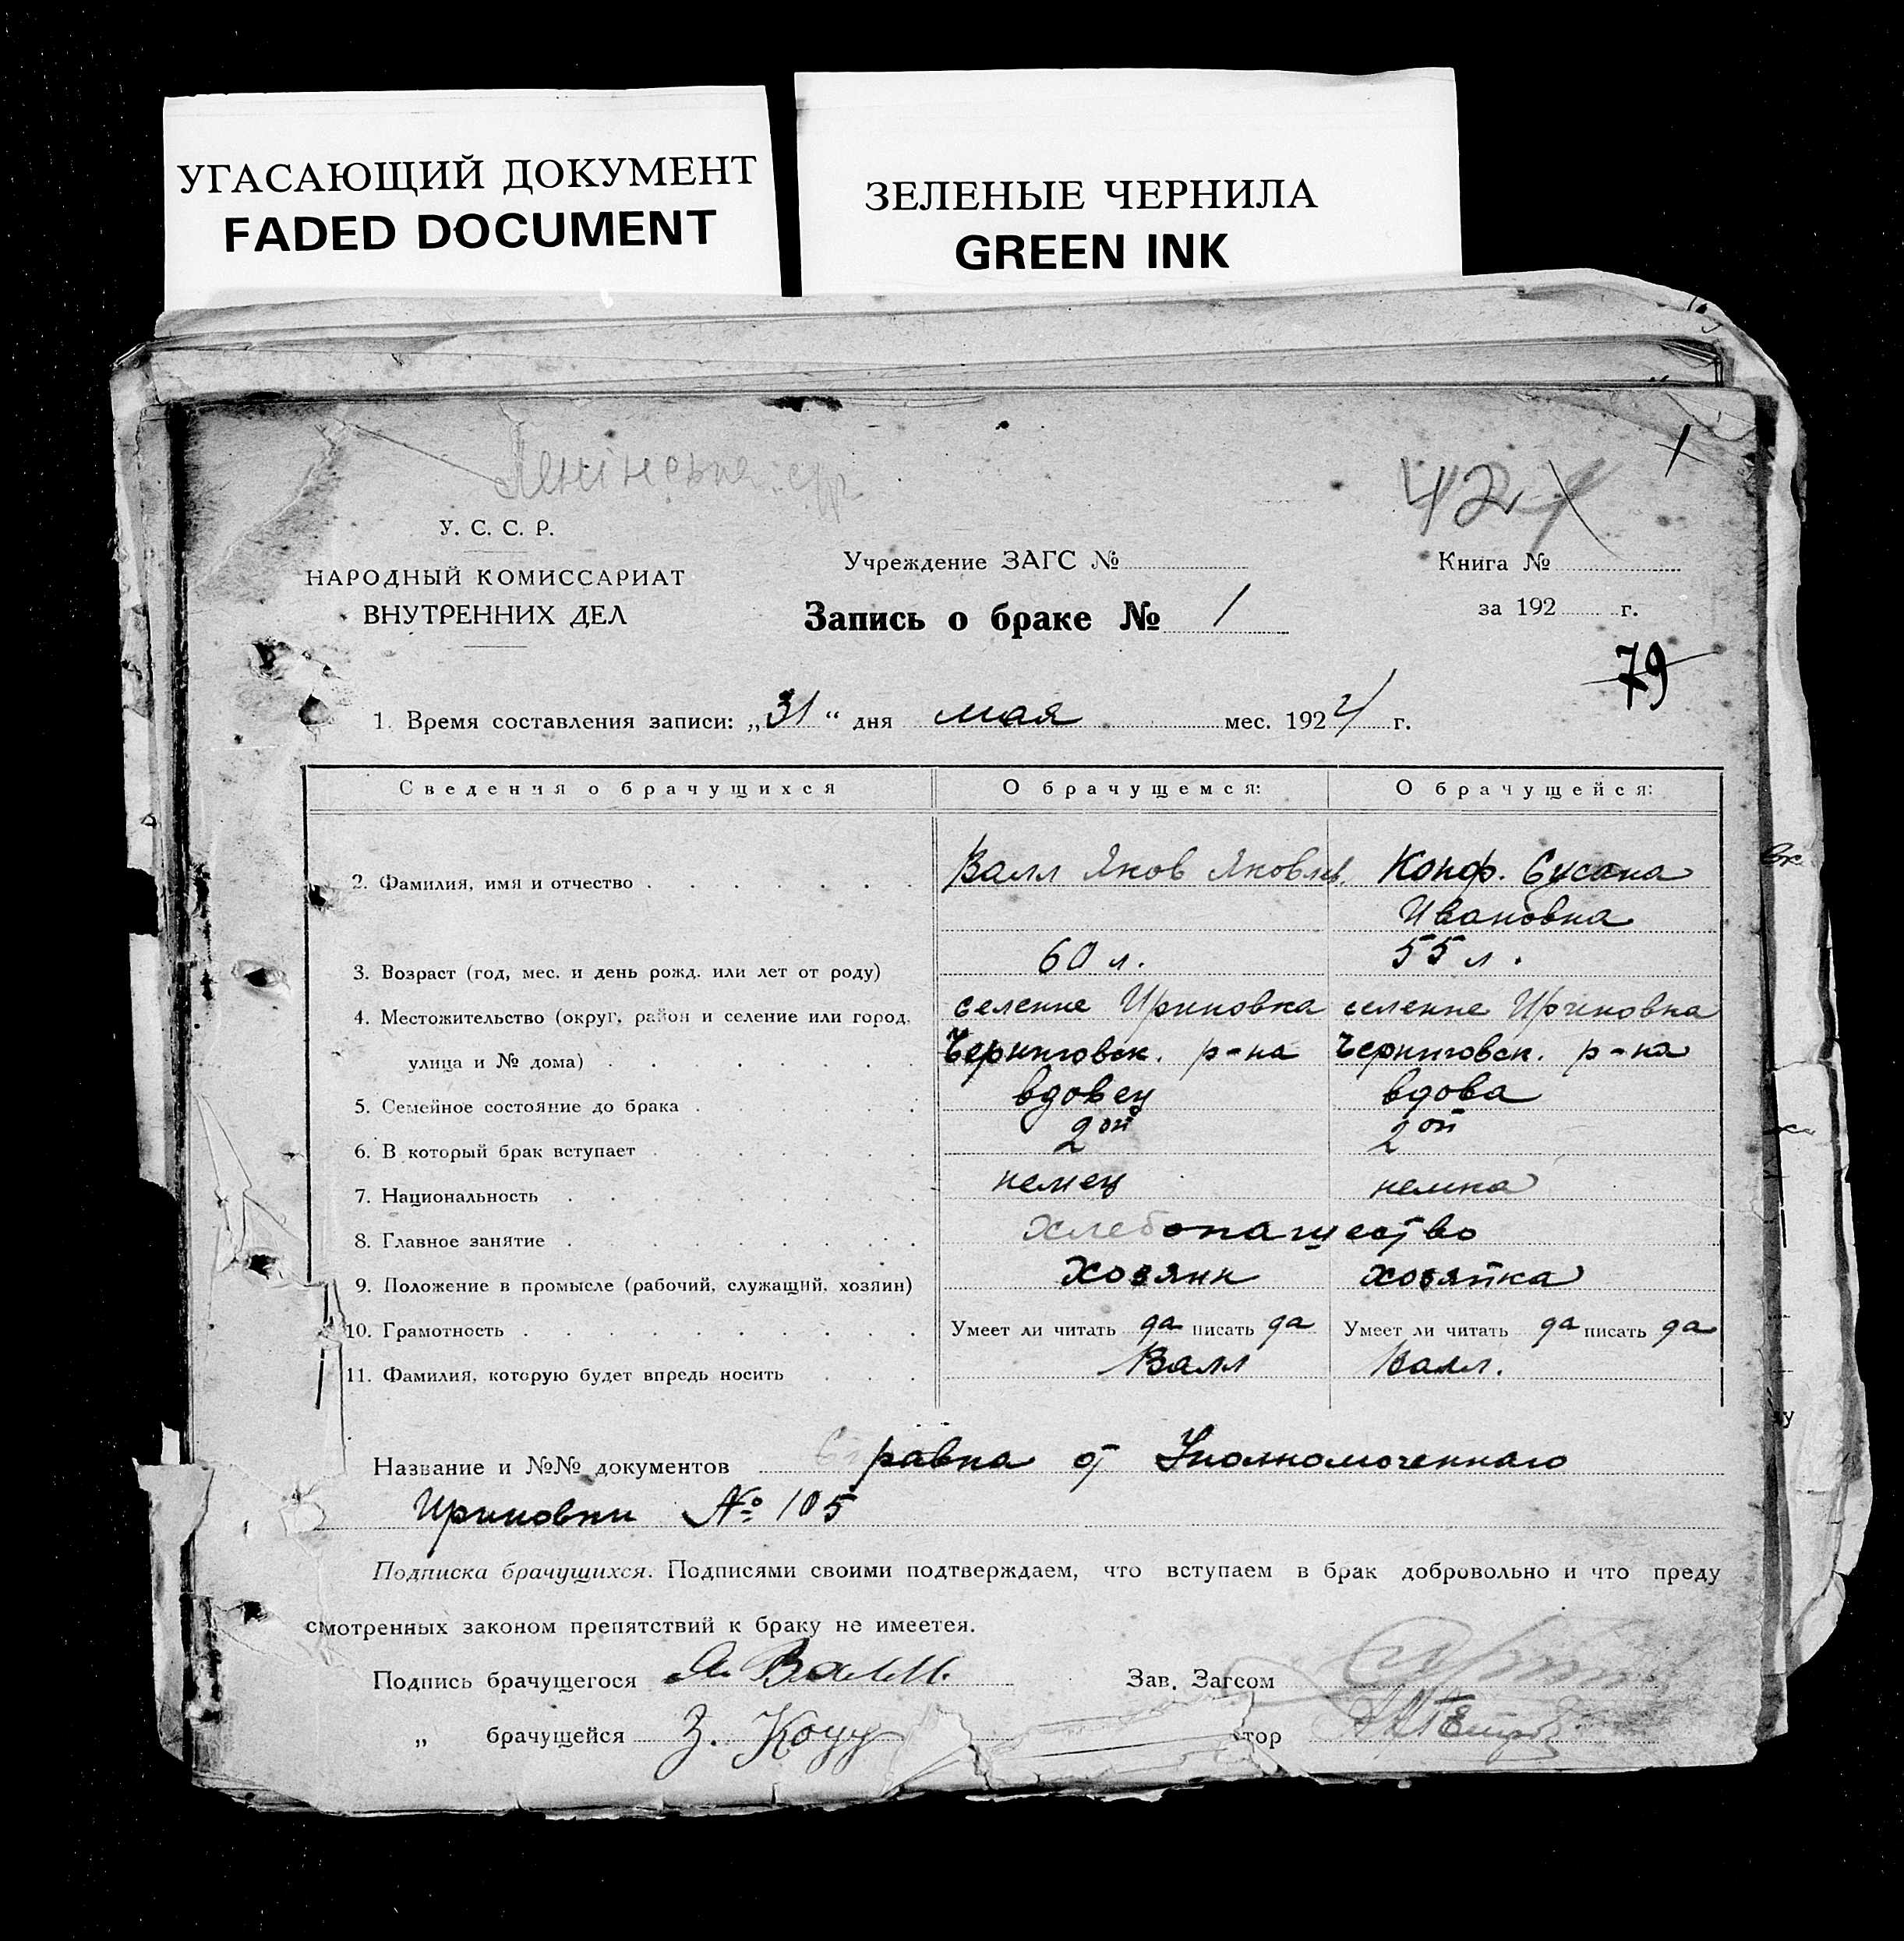 УГАСАЮЩИЙ ДОКУМЕНТ
FADED DOCUMENT
ЗЕЛЕНЫЕ ЧЕРНИЛА
GREEN INK
42
У. С. С. Р.
НАРОДНЫЙ КОМИССАРИАТ
ВНУТРЕННИХ ДЕЛ
Учреждение ЗАГС №
Запись о браке № 1
Книга №
за 192 г.
79
1. Время составления записи: „31“ дня мая мес. 1924 г.
Сведения о брачущихся О брачущемся: О брачущейся:
2. Фамилия, имя и отчество Валл Яков Яковлев. Конф. Сусана
Ивановна
3. Возраст (год, мес. и день рожд. или лет от роду) 60 л. 55 л.
4. Местожительство (округ, район и селение или город, селение Ириновка селение Ириновка
улица и № дома) Черниговск. р-на Черниговск. р-на
5. Семейное состояние до брака вдовец вдова
6. В который брак вступает 2ой 2ой
7. Национальность немец немка
8. Главное занятие хлебопашество
9. Положение в промысле (рабочий, служащий, хозяин) хозяин хозяйка
10. Грамотность Умеет ли читать да писать да Умеет ли читать да писать да
11. Фамилия, которую будет впредь носить Валл Валл.
Название и №№ документов Справка от Уполномоченнаго
Ириновки № 105
Подписка брачущихся. Подписями своими подтверждаем, что вступаем в брак добровольно и что преду
смотренных законом препятствий к браку не имеется.
Подпись брачущегося Я. Валл. Зав. Загсом
„ брачущейся З. Коуу тор